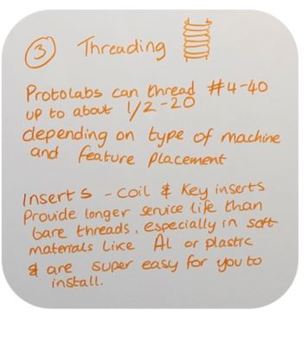 3 Threading
Protolabs can thread #4-40
up to about 1/2-20
depending on type of machine
and feature placement
Inserts - coil & Key inserts
Provide longer service life than
bare threads, especially in soft
materials like Al or plastic
& are super easy for you to
install.